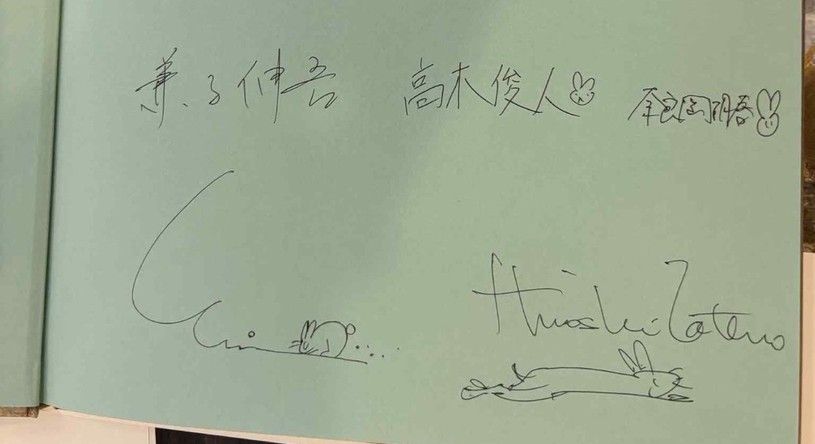 兼子伸吾 高木俊人 奈良岡明香
Hiroshi Tateno